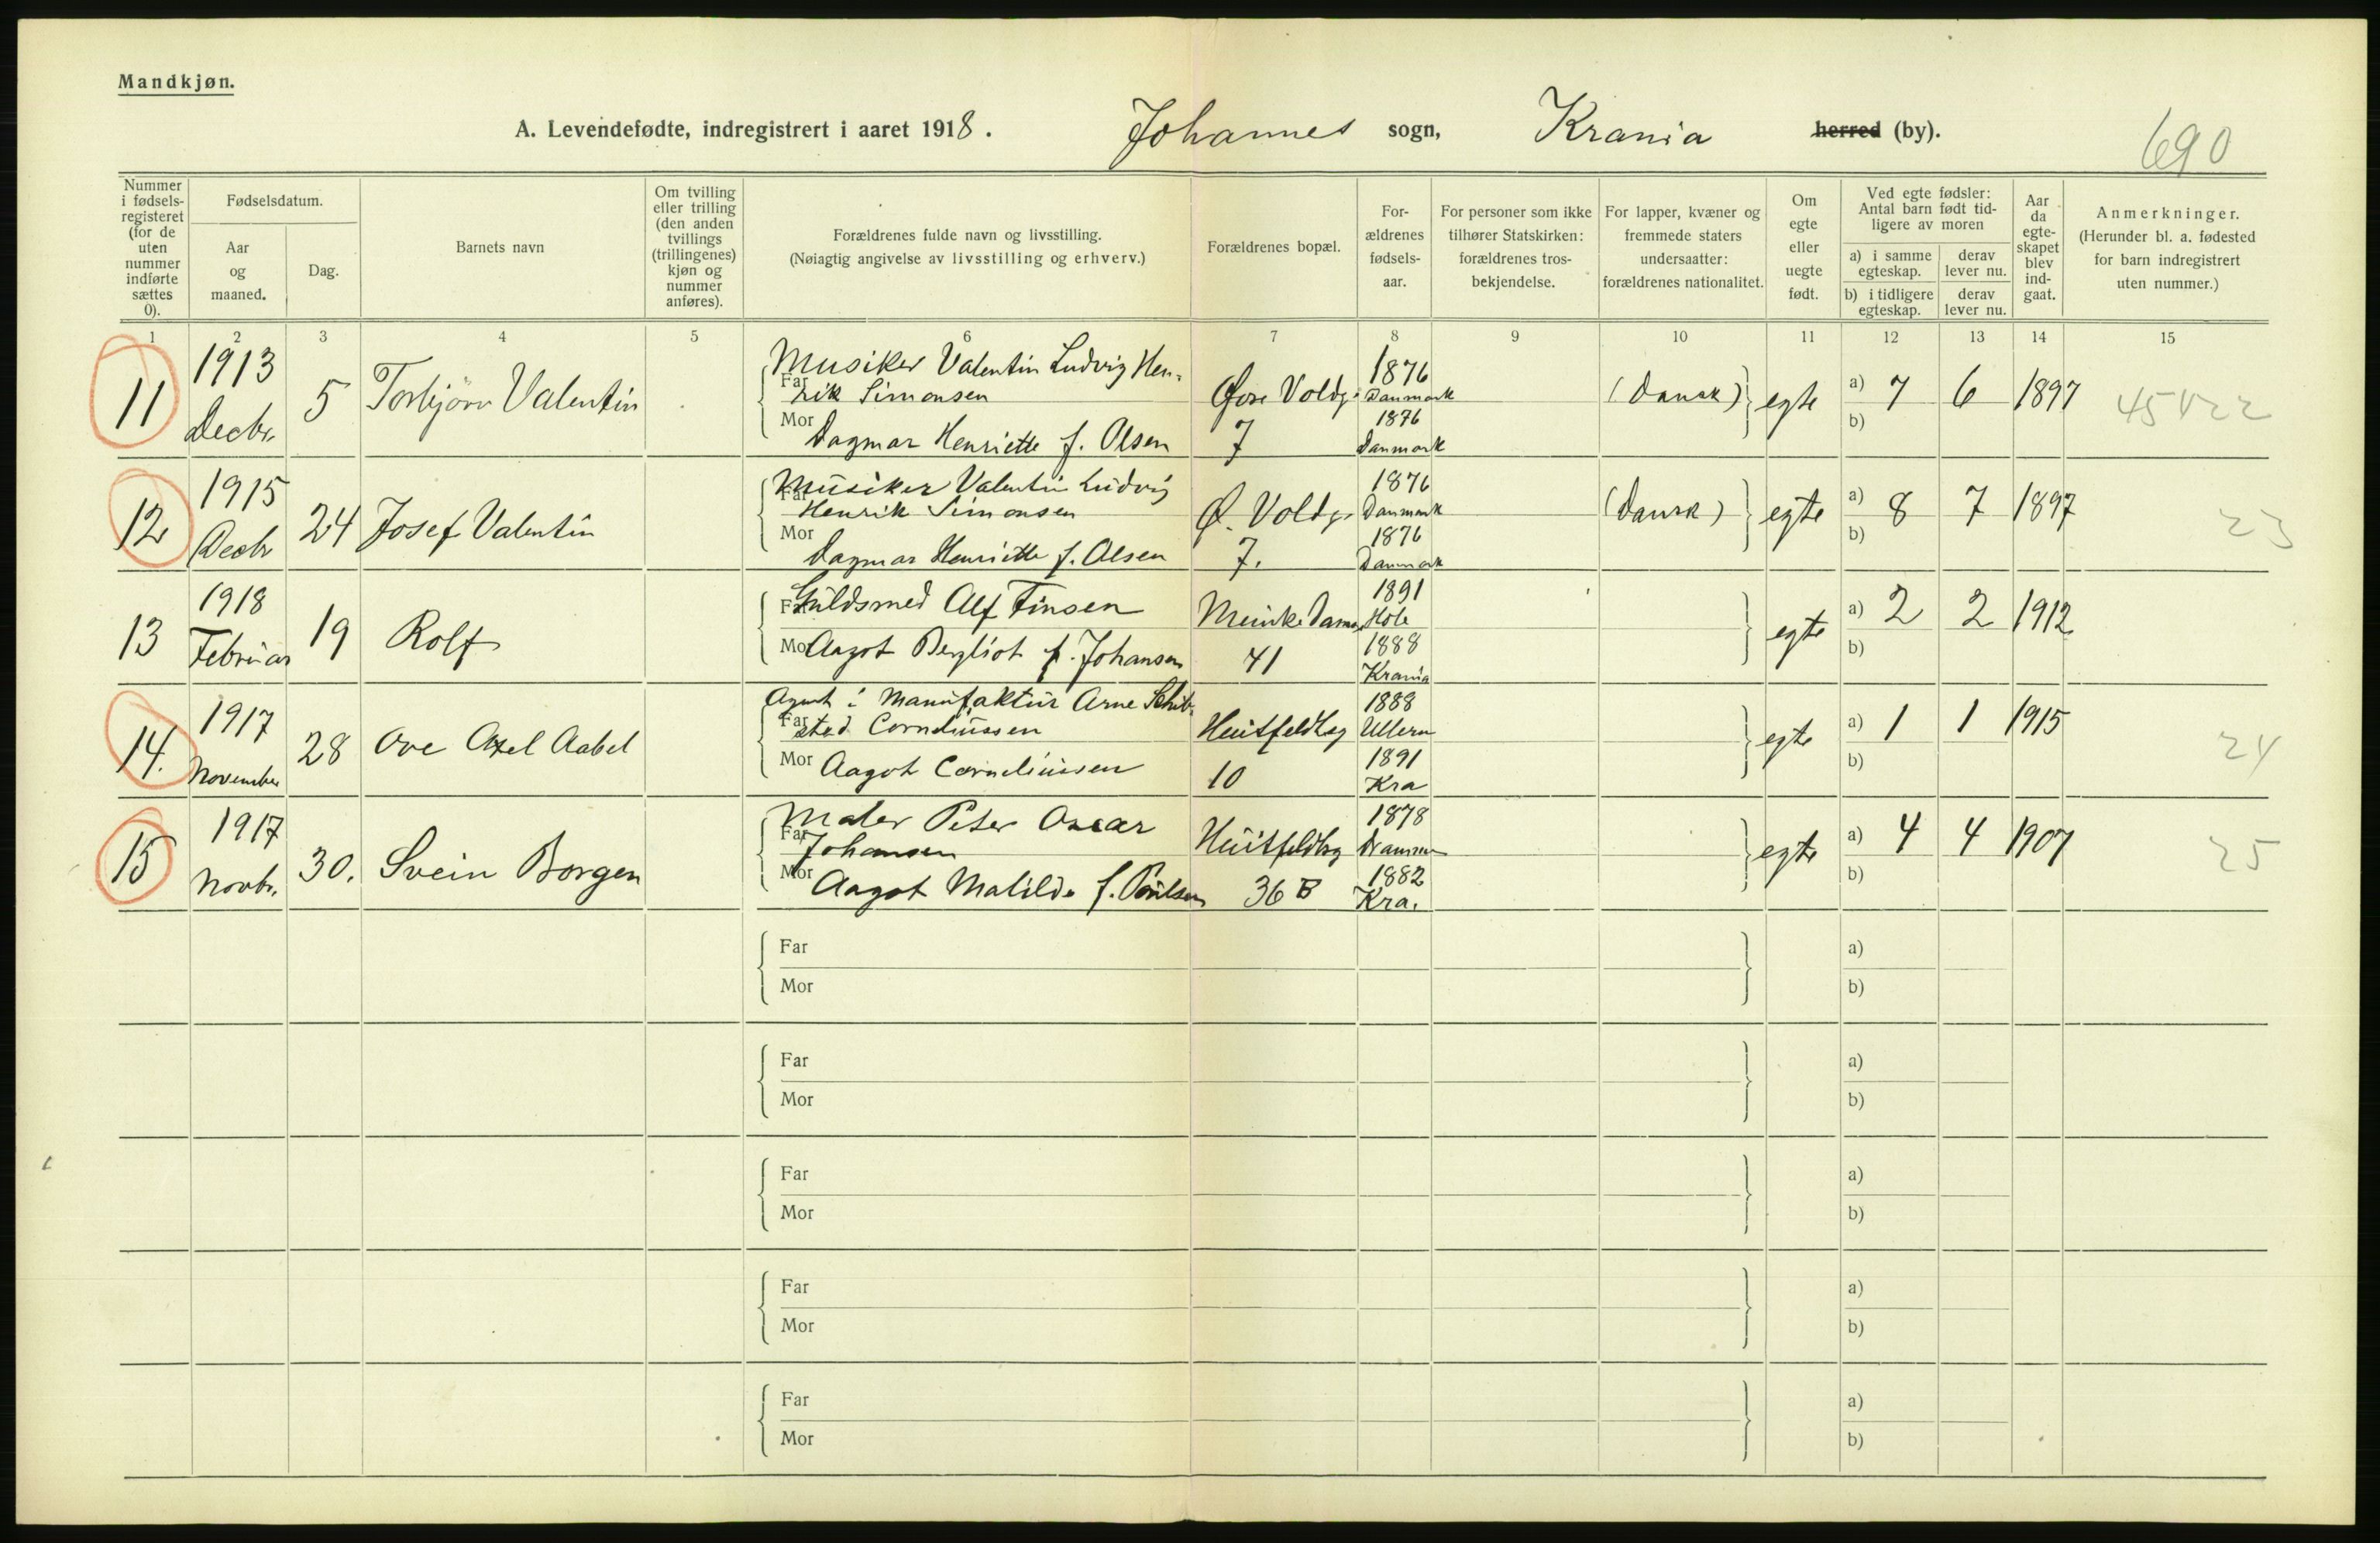 Mandkjøn.
A. Levendefødte, indregistrert i aaret 1918. Johannes sogn, Krania herred (by).
690
Nummer i fødselsregisteret (for de uten nummer indførte sættes 0).
Fødselsdatum.
Aar og maaned.
Dag.
Barnets navn
Om tvilling eller trilling (den anden tvillings (trillingenes) kjøn og nummer anføres).
Forældrenes fulde navn og livsstilling.
(Nøiagtig angivelse av livsstilling og erhverv.)
Forældrenes bopæl.
Forældrenes fødselsaar.
For personer som ikke tilhører Statskirken: forældrenes trosbekjendelse.
For lapper, kvæner og fremmede staters undersaatter: forældrenes nationalitet.
Om egte eller uegte født.
Ved egte fødsler: Antal barn født tidligere av moren
a) i samme egteskap.
derav lever nu.
b) i tidligere egteskap.
derav lever nu.
Aar da egteskapet blev indgaat.
Anmerkninger.
(Herunder bl. a. fødested for barn indregistrert uten nummer.)
1 2 3 4 5 6 7 8 9 10 11 12 13 14 15
11 1913 Decbr. 5 Torbjörn Valentin
Musiker Valentin Ludvig Hen-
Far rik Simonsen
Mor Dagmar Henriette f. Olsen
Øvre Voldg. 7
1876 Danmark
1876 Danmark
(Dansk) egte a) 7 6 1897 b)
45422
12 1915 Decbr 24 Josef Valentin
Musiker Valentin Ludvig
Far Henrik Simonsen
Mor Dagmar Henriette f. Olsen
Ø. Voldg. 7.
1876 Danmark
1876 Danmark
(Dansk) egte a) 8 7 1897 b)
23
13 1918 Februar 19 Rolf
Far Guldsmed Alf Finsen
Mor Aagot Bergliot f. Johansen
Munkedamsv. 41
1891 Hole
1888 Krania
egte a) 2 2 1912 b)
14. 1917 November 28 Ove Axel Aabel
Agent i Manufaktur Arne Schib-
Far sted Corneliussen
Mor Aagot Corneliussen
Huitfeldtsg 10
1888 Ullern
1891 Kra
egte a) 1 1 1915 b)
24
15 1917 Novbr. 30. Svein Borgen
Maler Peter Oscar
Far Johansen
Mor Aagot Matilde f. Poulsen
Huitfeldtsg 36 B
1878 Drammen
1882 Kra.
egte a) 4 4 1907 b)
25
Far a)
Mor b)
Far a)
Mor b)
Far a)
Mor b)
Far a)
Mor b)
Far a)
Mor b)